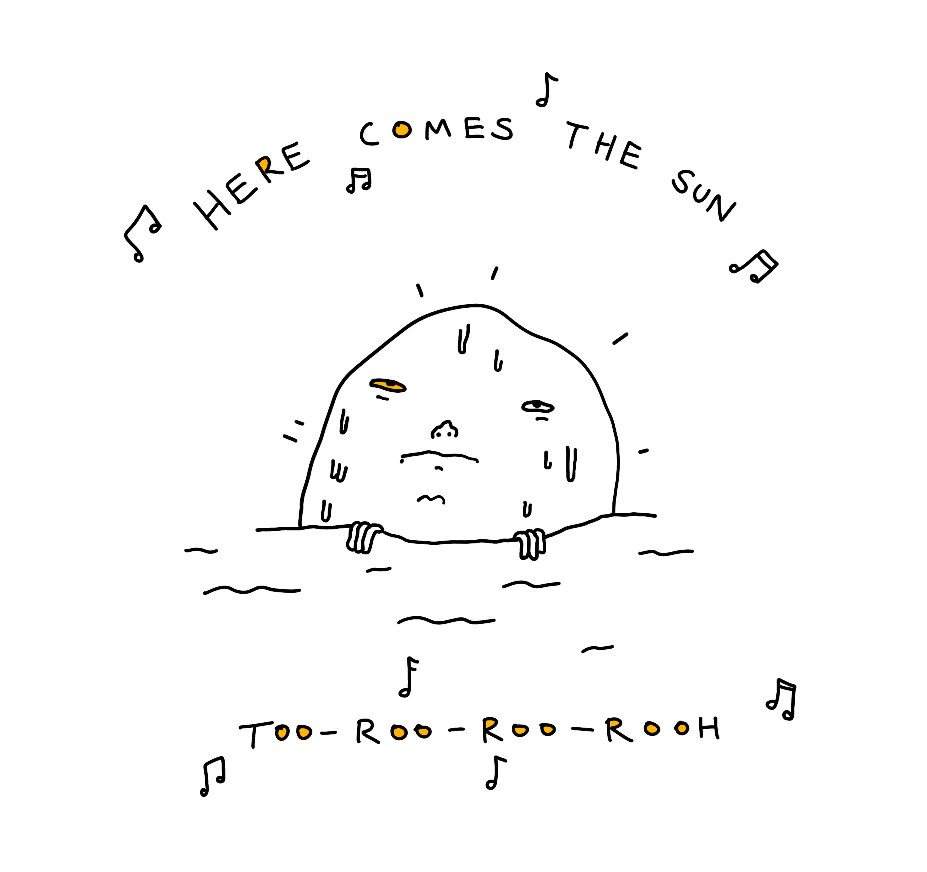 HERE COMES THE SUN
TOO-ROO-ROO-ROOH